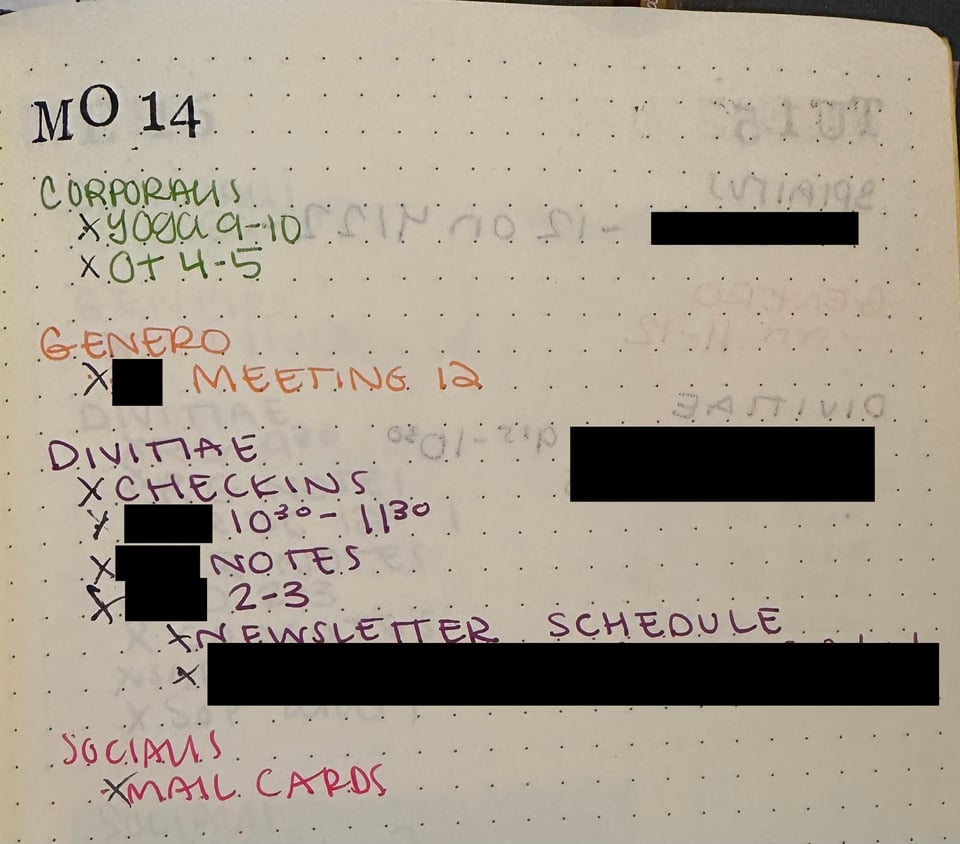 MO 14
CORPORALIS
X YOGA 9-10
X OT 4-5
GENERO
X MEETING 12
DIVITIAE
X CHECKINS
X 10³⁰ - 11³⁰
X NOTES
X 2-3
X NEWSLETTER SCHEDULE
X
SOCIALIS
X MAIL CARDS